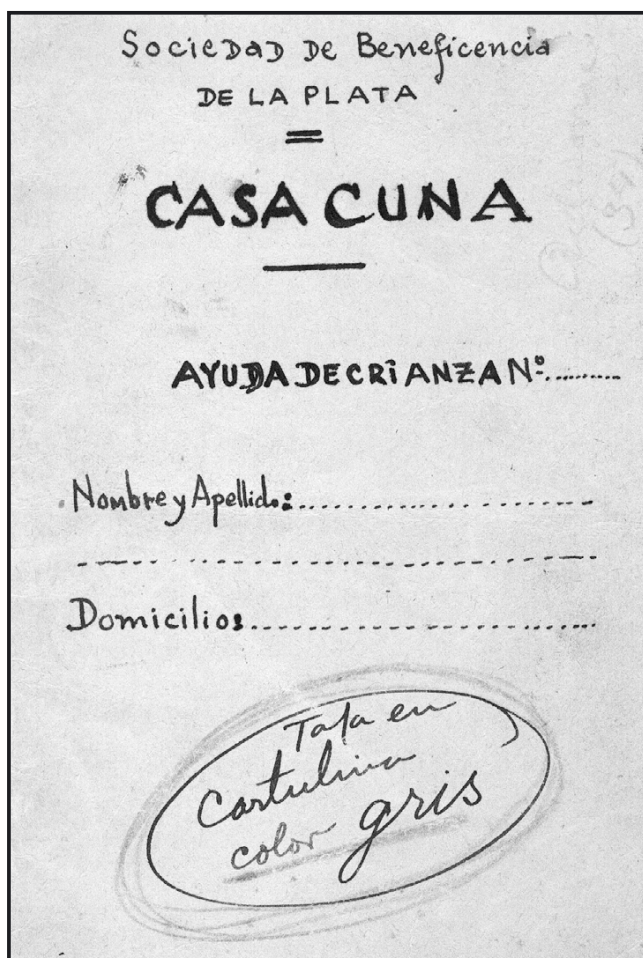 Sociedad de Beneficencia
DE LA PLATA
=
CASA CUNA
AYUDA DE CRiANZA Nº.........
Nombre y Apellido:..............................
------------------------------
Domicilio:..............................
Tapa en
cartulina
color gris